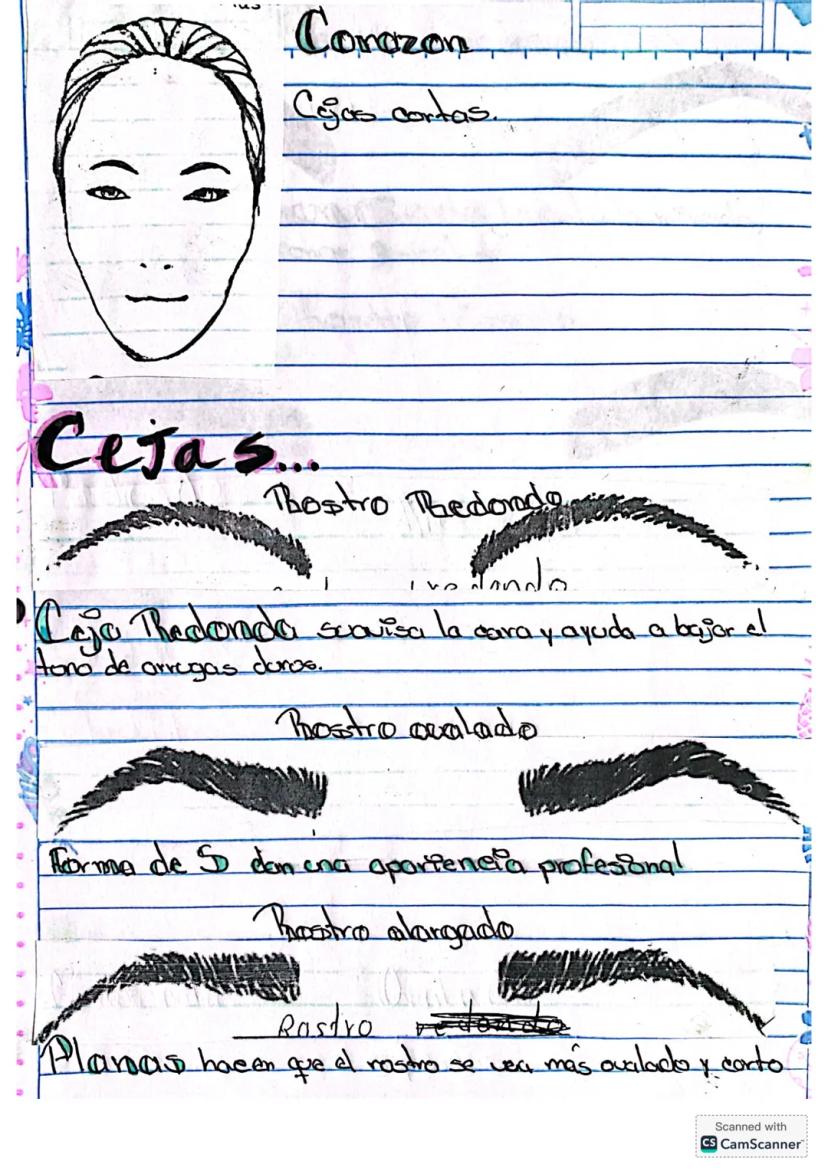 Corazon
Cejas cortas.
Cejas...
Rostro Redondo
Ceja Redonda suavisa la cara y ayuda a bajar el
tono de arrugas duros.
Rostro ovalado
Forma de S dan una apariencia profesional
Rostro alargado
Rostro
Planas hacen que el rostro se vea más ovalado y corto
Scanned with
CS CamScanner